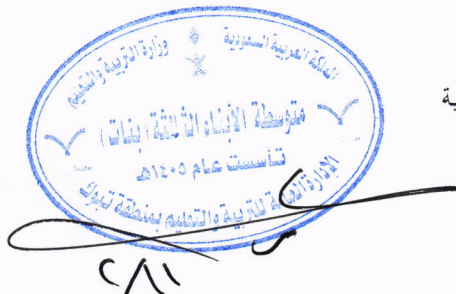 المملكة العربية السعودية
وزارة التربية والتعليم
متوسطة الأبناء الثالثة (بنات)
تأسست عام ١٤٠٥هـ
الإدارة العامة للتربية والتعليم بمنطقة تبوك
ية